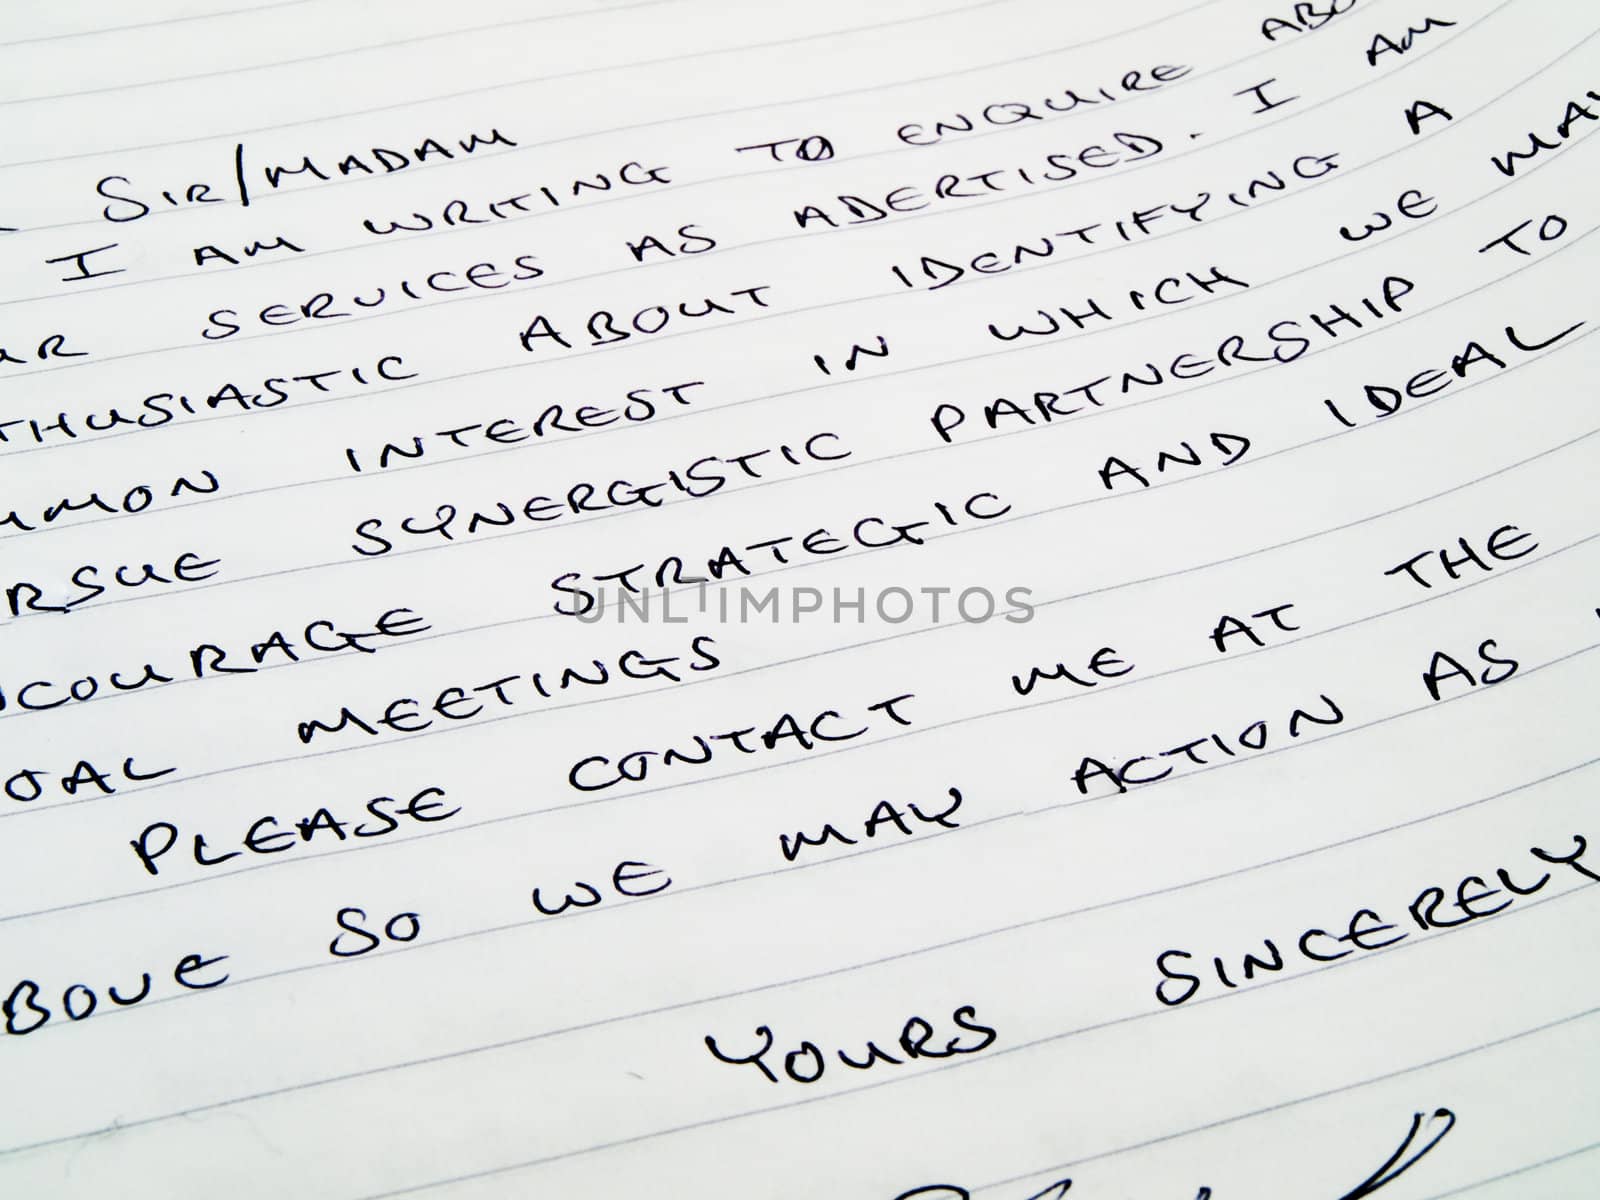 SIR/MADAM
I AM WRITING TO ENQUIRE ABO
SERVICES AS ADERTISED. I AM
THUSIASTIC ABOUT IDENTIFYING A
MMON INTEREST IN WHICH WE MAY
RSUE SYNERGISTIC PARTNERSHIP TO
COURAGE STRATEGIC AND IDEAL
OAL MEETINGS
PLEASE CONTACT ME AT THE
BOVE SO WE MAY ACTION AS
YOURS SINCERELY
UNLTIMPHOTOS